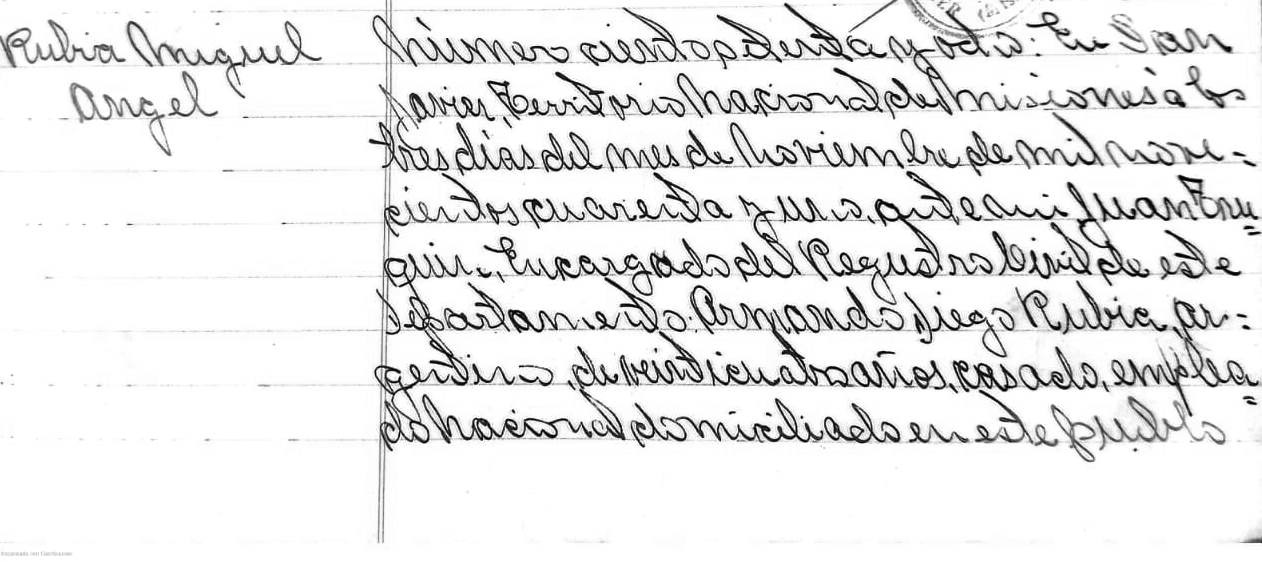 Rubia Miguel
Angel
Número ciento setenta y ocho: En San
Javier, Territorio Nacional de Misiones a los
tres dias del mes de Noviembre de mil nove=
cientos cuarenta y uno, ante mi Juan
Encargado del Registro Civil de este
departamento: Armando Diego Rubia, ar=
gentino, de veinticuatro años, casado, emplea=
do Nacional domiciliado en este pueblo
Escaneado con CamScanner